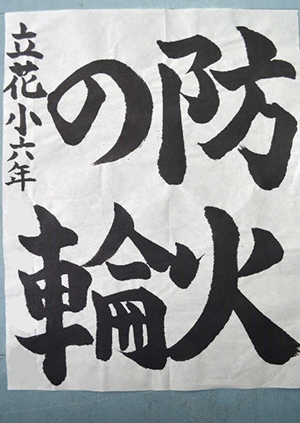 防火
の輪
立花小六年